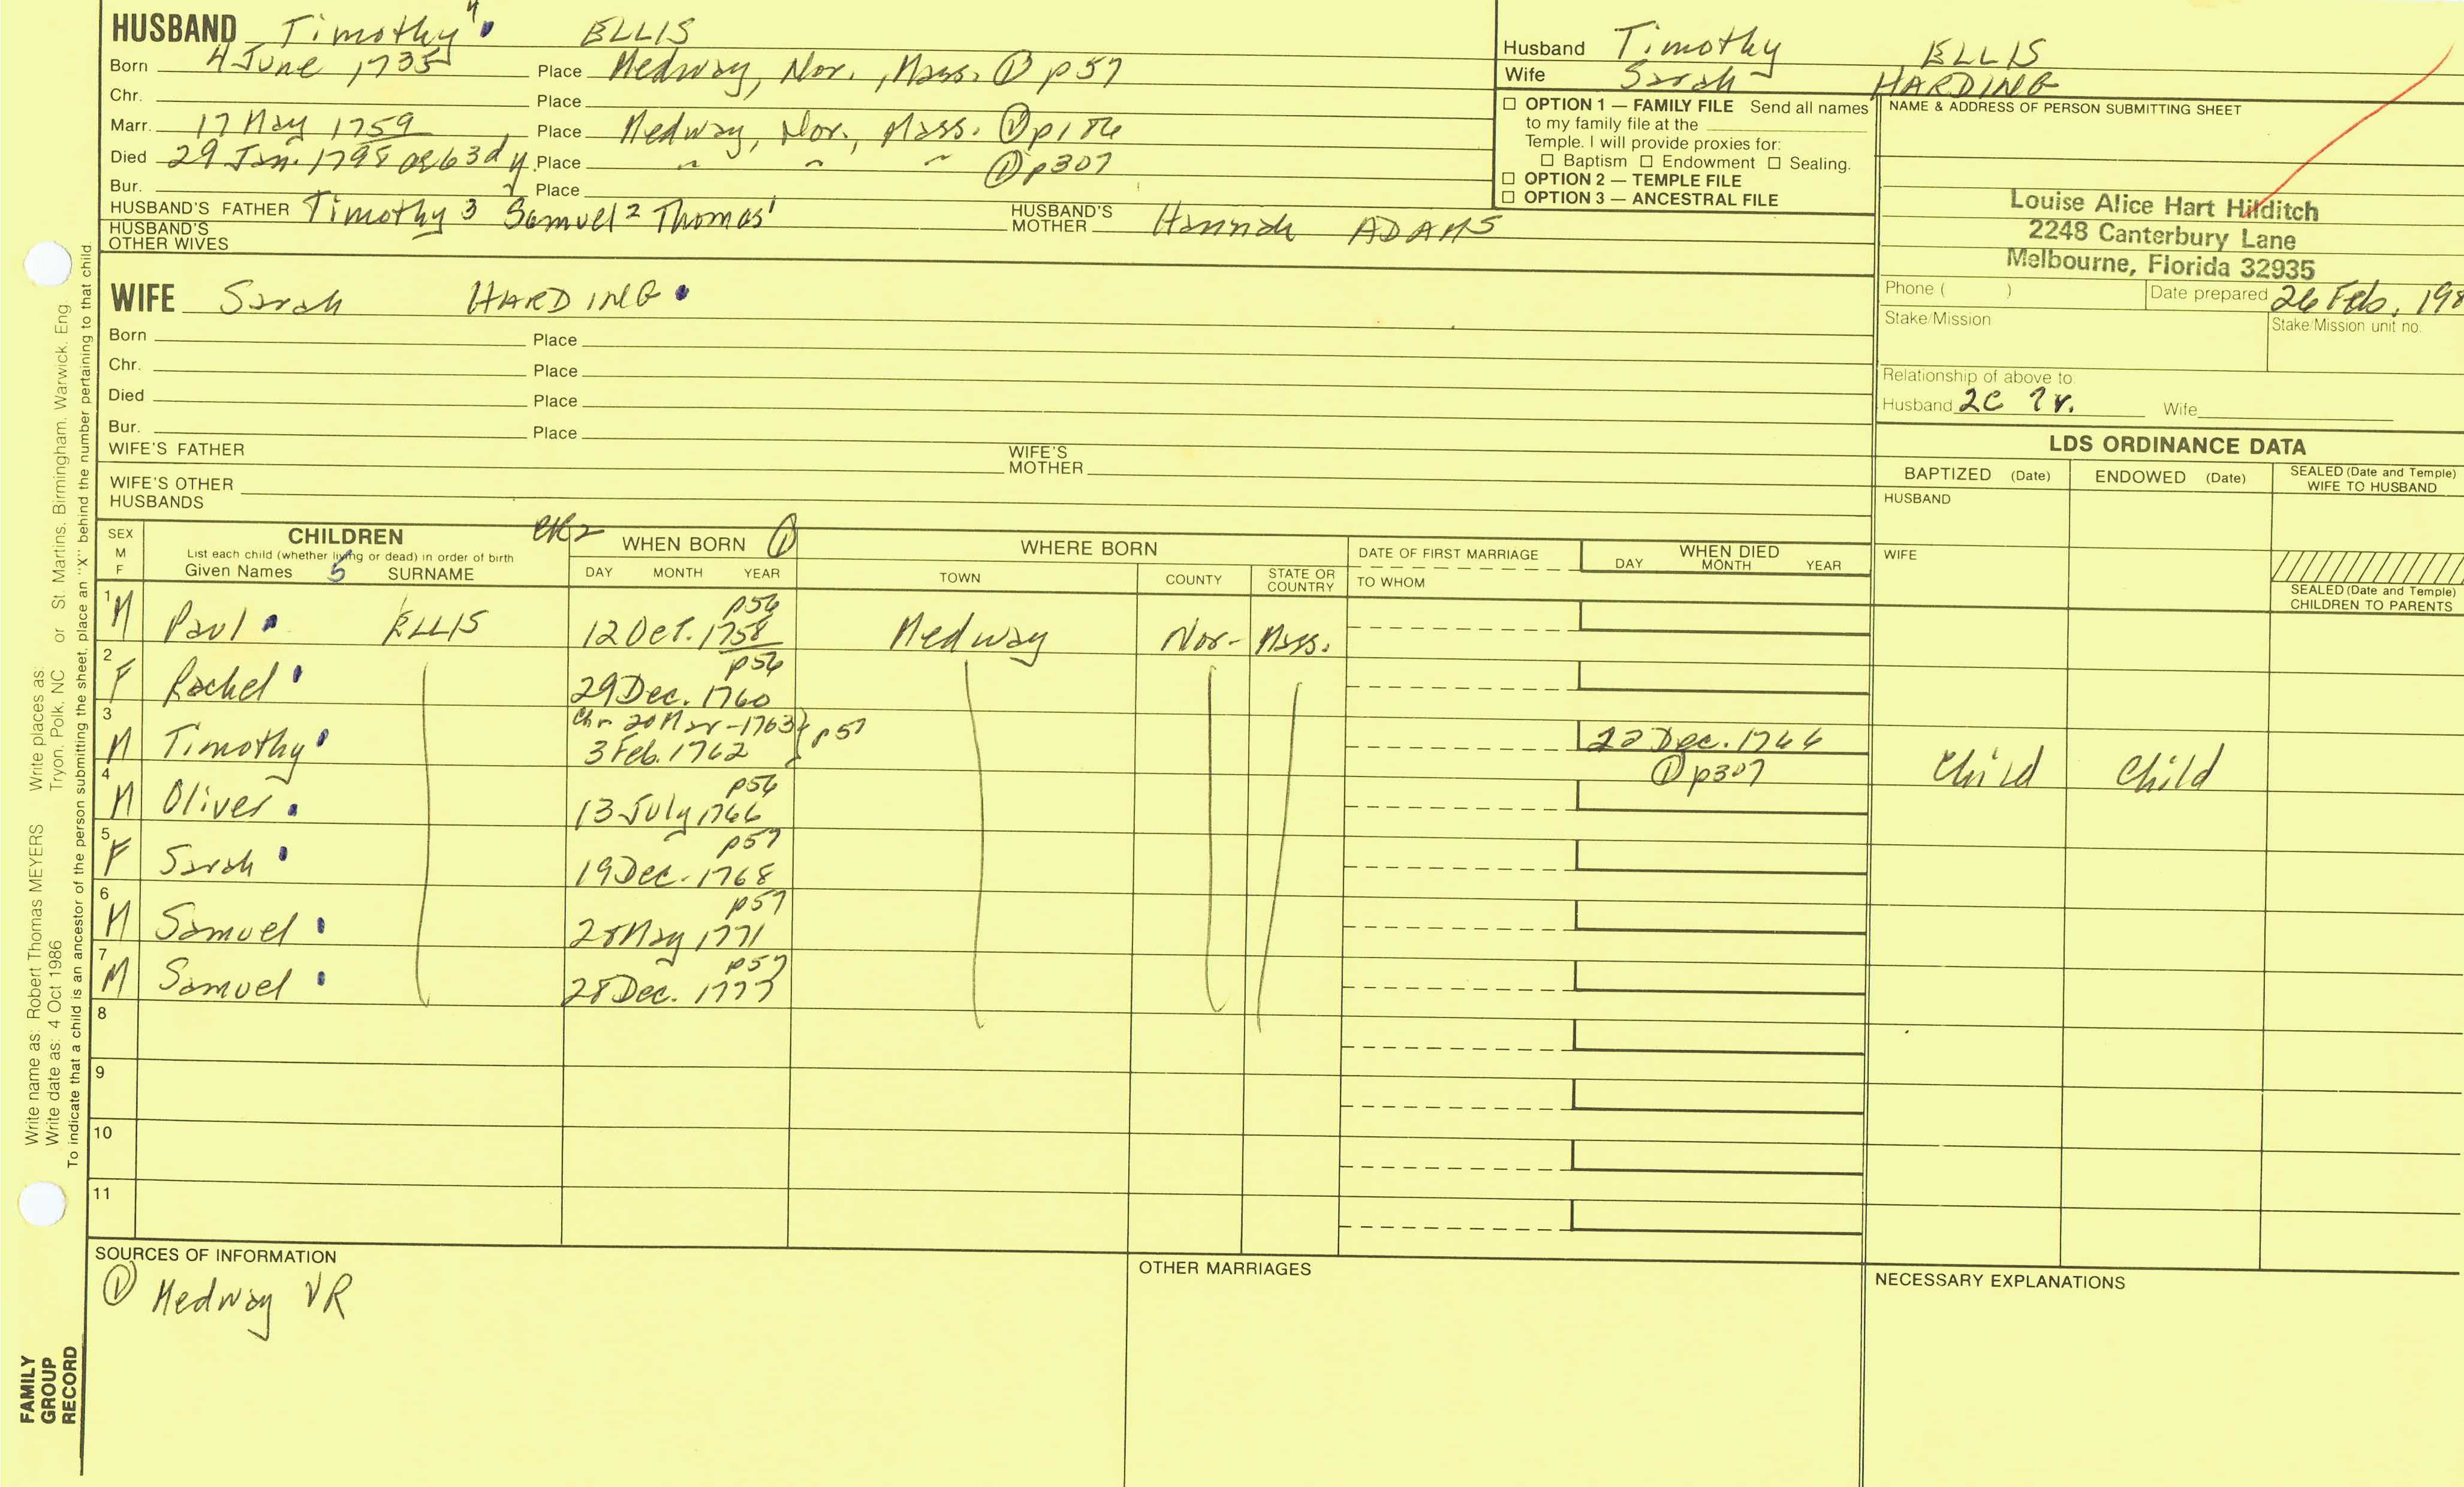 HUSBAND Timothy 4 ELLIS
Born 4 June 1735 Place Medway, Nor., Mass. ① p57
Chr. Place
Marr. 17 May 1759 Place Medway, Nor., Mass. ① p186
Died 29 Jan. 1798 ae 63d y. Place " " " ① p307
Bur. Place
HUSBAND'S FATHER Timothy 3 Samuel 2 Thomas 1 HUSBAND'S MOTHER Hannah ADAMS
HUSBAND'S OTHER WIVES
Husband Timothy ELLIS
Wife Sarah HARDING
☐ OPTION 1 — FAMILY FILE Send all names
to my family file at the
Temple. I will provide proxies for:
☐ Baptism ☐ Endowment ☐ Sealing.
☐ OPTION 2 — TEMPLE FILE
☐ OPTION 3 — ANCESTRAL FILE
NAME & ADDRESS OF PERSON SUBMITTING SHEET
Louise Alice Hart Hilditch
2248 Canterbury Lane
Melbourne, Florida 32935
Phone ( ) Date prepared 26 Feb. 198
Stake/Mission Stake/Mission unit no.
Relationship of above to:
Husband 2C 7r. Wife
WIFE Sarah HARDING
Born Place
Chr. Place
Died Place
Bur. Place
WIFE'S FATHER WIFE'S MOTHER
WIFE'S OTHER HUSBANDS
LDS ORDINANCE DATA
BAPTIZED (Date) ENDOWED (Date) SEALED (Date and Temple) WIFE TO HUSBAND
HUSBAND
WIFE
SEALED (Date and Temple) CHILDREN TO PARENTS
SEX M F
CHILDREN
List each child (whether living or dead) in order of birth
Given Names 5 SURNAME
WHEN BORN ①
DAY MONTH YEAR
WHERE BORN
TOWN COUNTY STATE OR COUNTRY
DATE OF FIRST MARRIAGE
TO WHOM
WHEN DIED
DAY MONTH YEAR
p56
1 M Paul ELLIS 12 Oct. 1758 Medway Nor- Mass.
p56
2 F Rachel 29 Dec. 1760
Chr 20 Mar-1763 } p57
3 M Timothy 3 Feb. 1762 22 Dec. 1766
① p307 Child Child
p56
4 M Oliver 13 July 1766
p57
5 F Sarah 19 Dec. 1768
p57
6 M Samuel 28 May 1771
p57
7 M Samuel 28 Dec. 1777
8
9
10
11
SOURCES OF INFORMATION
① Medway VR
OTHER MARRIAGES
NECESSARY EXPLANATIONS
Write name as: Robert Thomas MEYERS Write places as: Tryon, Polk, NC or St. Martins, Birmingham, Warwick, Eng.
Write date as: 4 Oct 1986
To indicate that a child is an ancestor of the person submitting the sheet, place an "X" behind the number pertaining to that child.
FAMILY
GROUP
RECORD